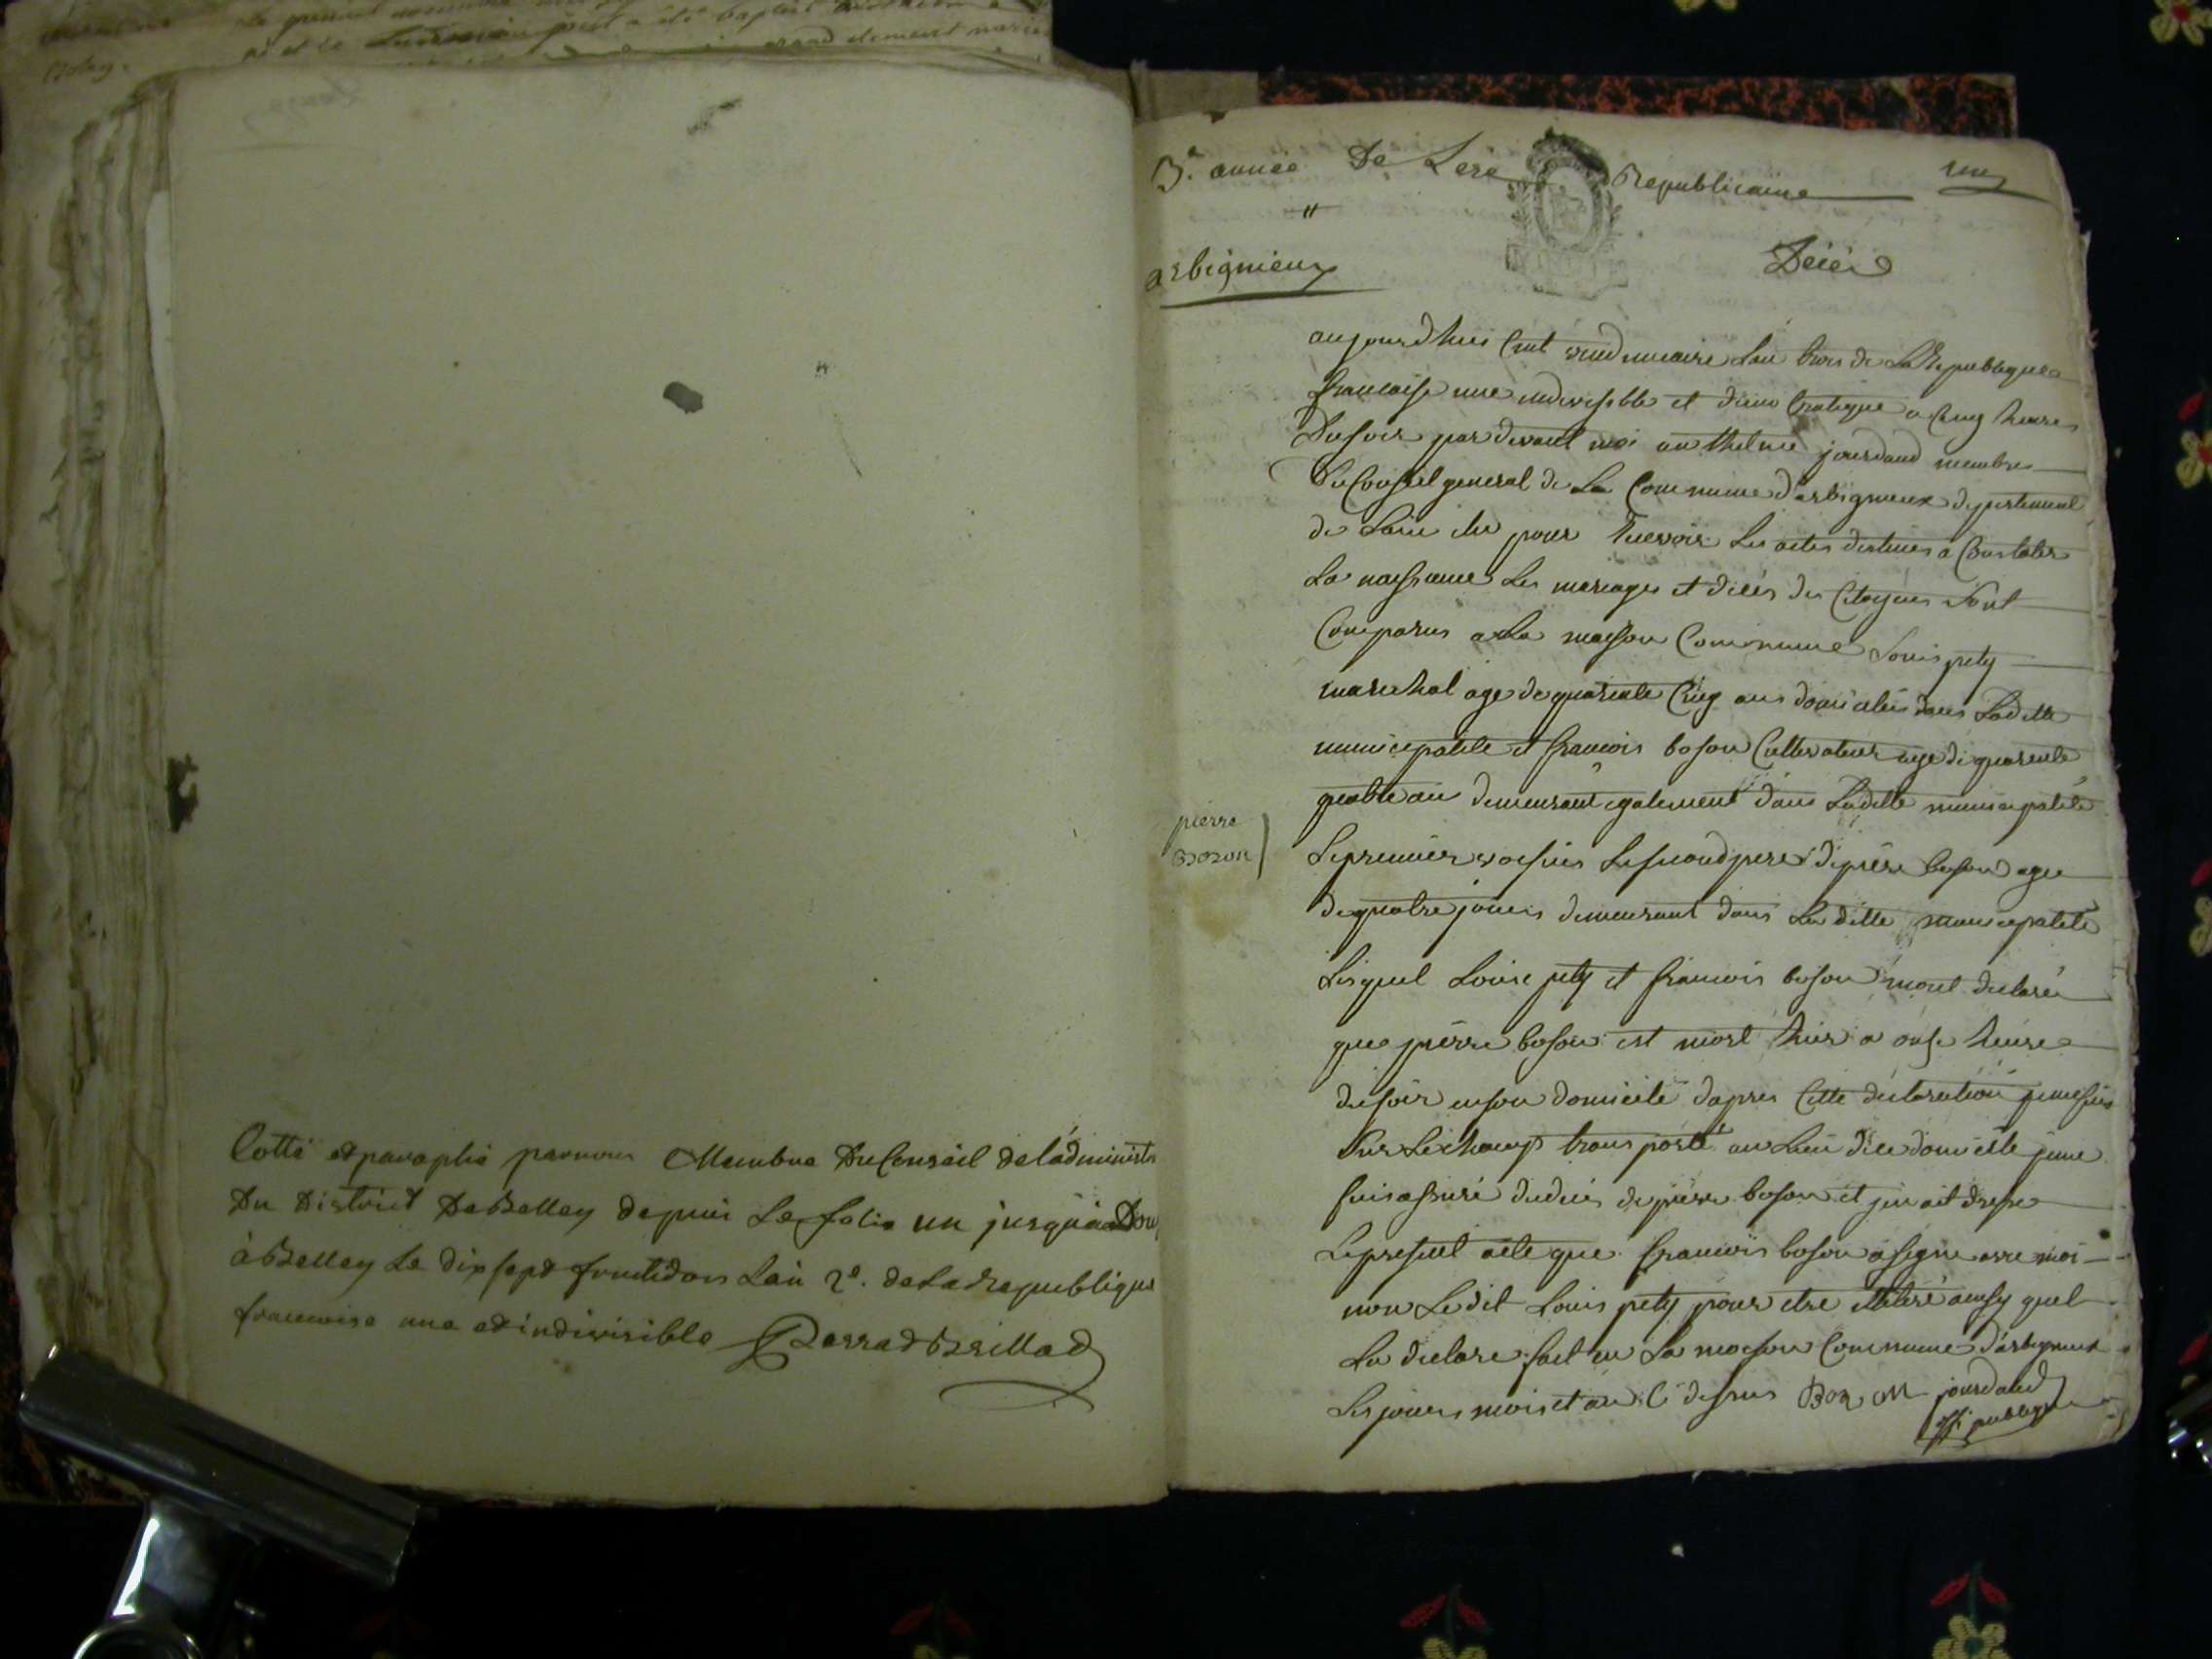 Cotté et paraphé par nous Membre Du Conseil de l'administon
Du District De Belley depuis Le folio un jusqu'au
à Belley Le dix sept fructidor L'an 2e. de La Republique
francoise une et indivisible Perrad Brillad
3e. année De L'ere Republicaine un
arbignieux Décés
aujourdhui vendemiaire L'an trois de La Republique
francaise une indivisible et a cinq heures
Du soir par devant moi anthelme jourdand membre
Du Conseil general de La Commune d'arbignieux departement
de L'ain elu pour recevoir Les actes destinés a Constater
La naissance Les mariages et décés des Citoyens sont
Comparus a La maison Commune Louis pety
marechal age de quarente cinq ans domicilié dans Laditte
municipalité et francois boson Cultivateur age de quarente
quatre an demeurant egalement dans Laditte municipalité
Le premier voesin Le second pere de pierre boson age
pierre
Bozon
de quatre jours demeurant dans La ditte municipalité
Lesquel Louis pety et francois boson m'ont declaré
que pierre boson est mort hier a onse heure
du soir en son domicile d'apres Cette declaration je me suis
sur Le champ transporté au Lieu de ce domicile je me
suis assuré du deces de pierre boson et j'en ait dressé
Le present acte que francois boson a signe avec moi
non Le dit Louis pety pour etre illiteré ainsy quel
La declare fait en La maison Commune d'arbignieux
Les jours mois et an Ci dessus Bozon jourdand
offi publique